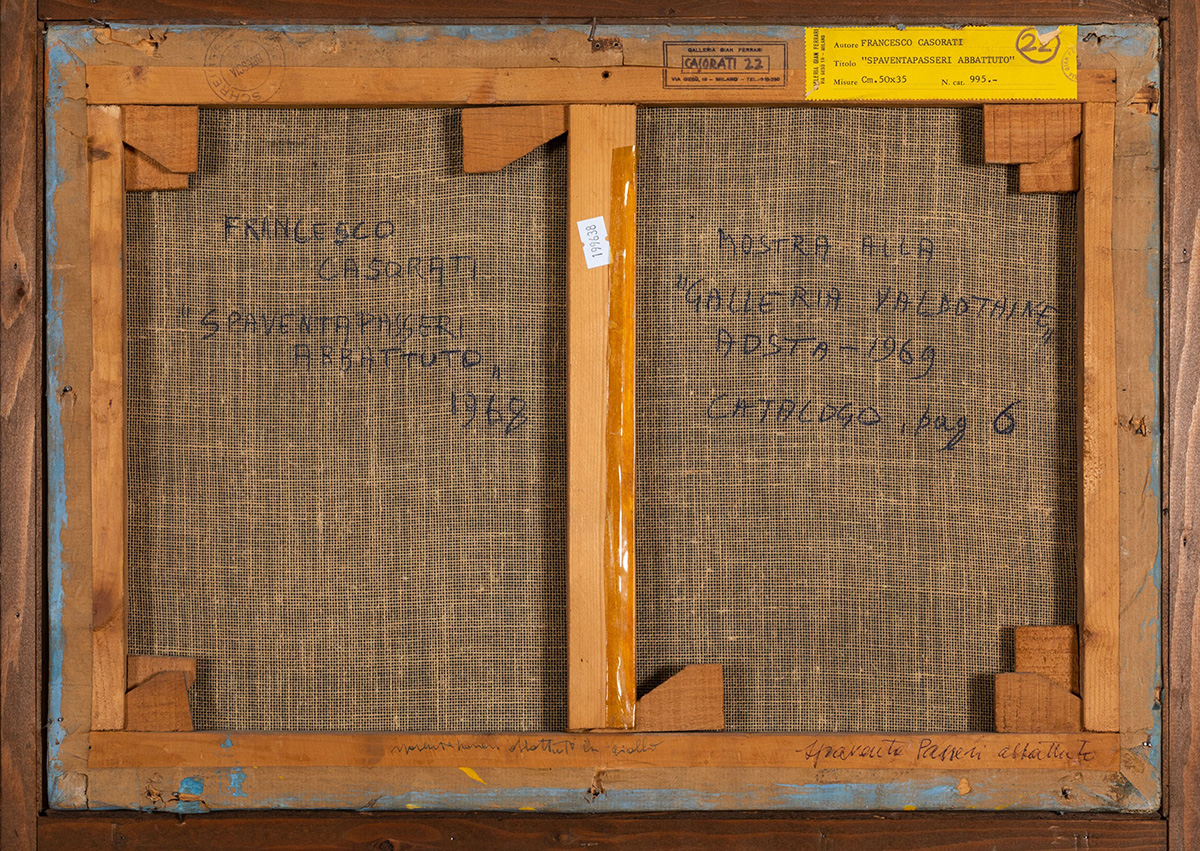 GALLERIA GIAN FERRARI
CASORATI 22
GALLERIA GIAN FERRARI
VIA GESÙ, 19 – MILANO
Autore FRANCESCO CASORATI
Titolo "SPAVENTAPASSERI ABBATTUTO"
Misure Cm.50x35 N. cat. 995.–
22
199638
FRANCESCO
CASORATI
"SPAVENTAPASSERI
ABBATTUTO„
1968
MOSTRA ALLA
"GALLERIA VALDOTHINE„
AOSTA – 1969
CATALOGO, pag 6
abbattuto in giallo
Spaventa Passeri abbattuto